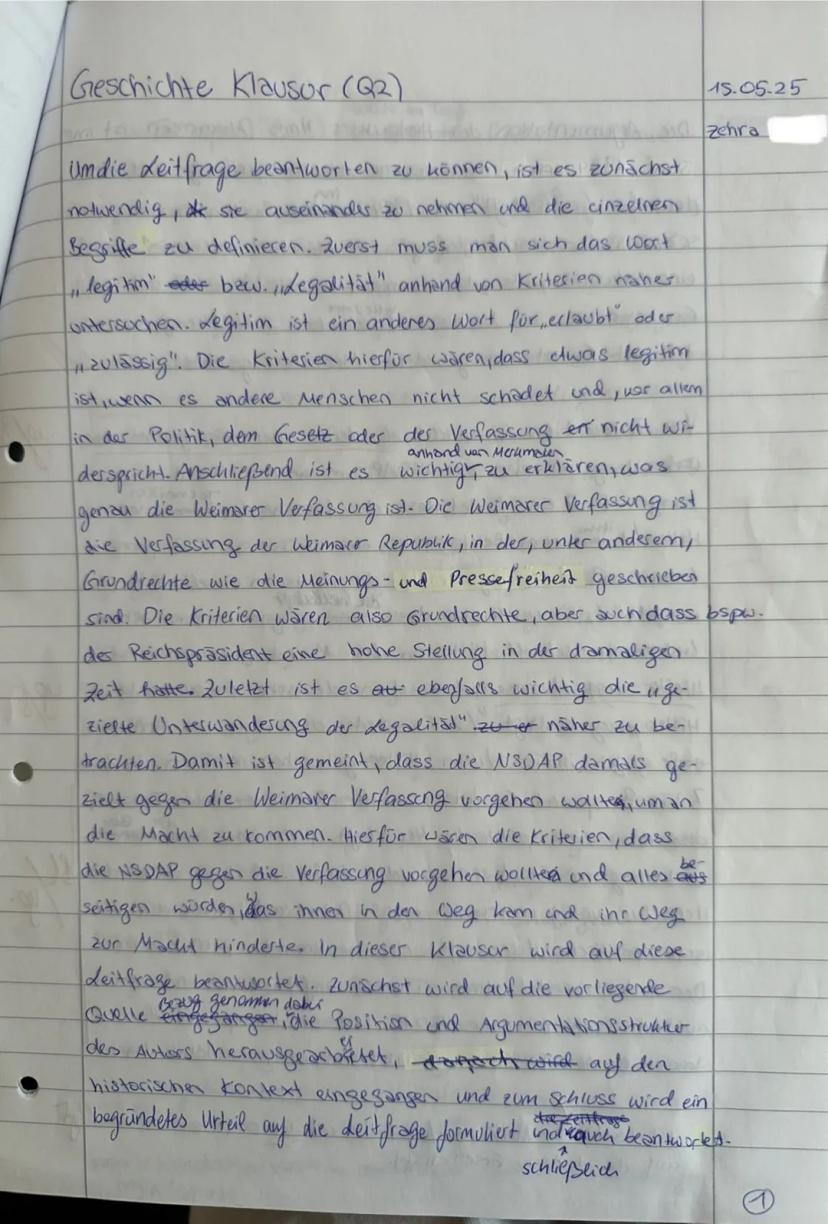 Geschichte Klausur (Q2)
15.05.25
zehra
Um die Leitfrage beantworten zu können, ist es zunächst
notwendig, sie auseinander zu nehmen und die einzelnen
Begriffe zu definieren. Zuerst muss man sich das Wort
„legitim" bzw. „Legalität" anhand von Kriterien näher
untersuchen. Legitim ist ein anderes Wort für „erlaubt" oder
„zulässig". Die Kriterien hierfür wären, dass etwas legitim
ist, wenn es andere Menschen nicht schadet und, vor allem
in der Politik, dem Gesetz oder der Verfassung nicht wi-
derspricht. Anschließend ist es wichtig, anhand von Merkmalen zu erklären, was
genau die Weimarer Verfassung ist. Die Weimarer Verfassung ist
die Verfassung der Weimarer Republik, in der, unter anderem,
Grundrechte wie die Meinungs- und Pressefreiheit geschrieben
sind. Die Kriterien wären also Grundrechte, aber auch dass bspw.
der Reichspräsident eine hohe Stellung in der damaligen
Zeit hatte. Zuletzt ist es ebenfalls wichtig die „ge-
zielte Unterwanderung der Legalität" näher zu be-
trachten. Damit ist gemeint, dass die NSDAP damals ge-
zielt gegen die Weimarer Verfassung vorgehen wollte, um an
die Macht zu kommen. Hierfür wären die Kriterien, dass
die NSDAP gegen die Verfassung vorgehen wollte und alles be-
seitigen würden, was ihnen in den Weg kam und ihr Weg
zur Macht hinderte. In dieser Klausur wird auf diese
Leitfrage beantwortet. Zunächst wird auf die vorliegende
Quelle Bezug genommen, dabei die Position und Argumentationsstruktur
des Autors herausgearbeitet, auf den
historischen Kontext eingegangen und zum Schluss wird ein
begründetes Urteil auf die Leitfrage formuliert und schließlich auch beantwortet.
1